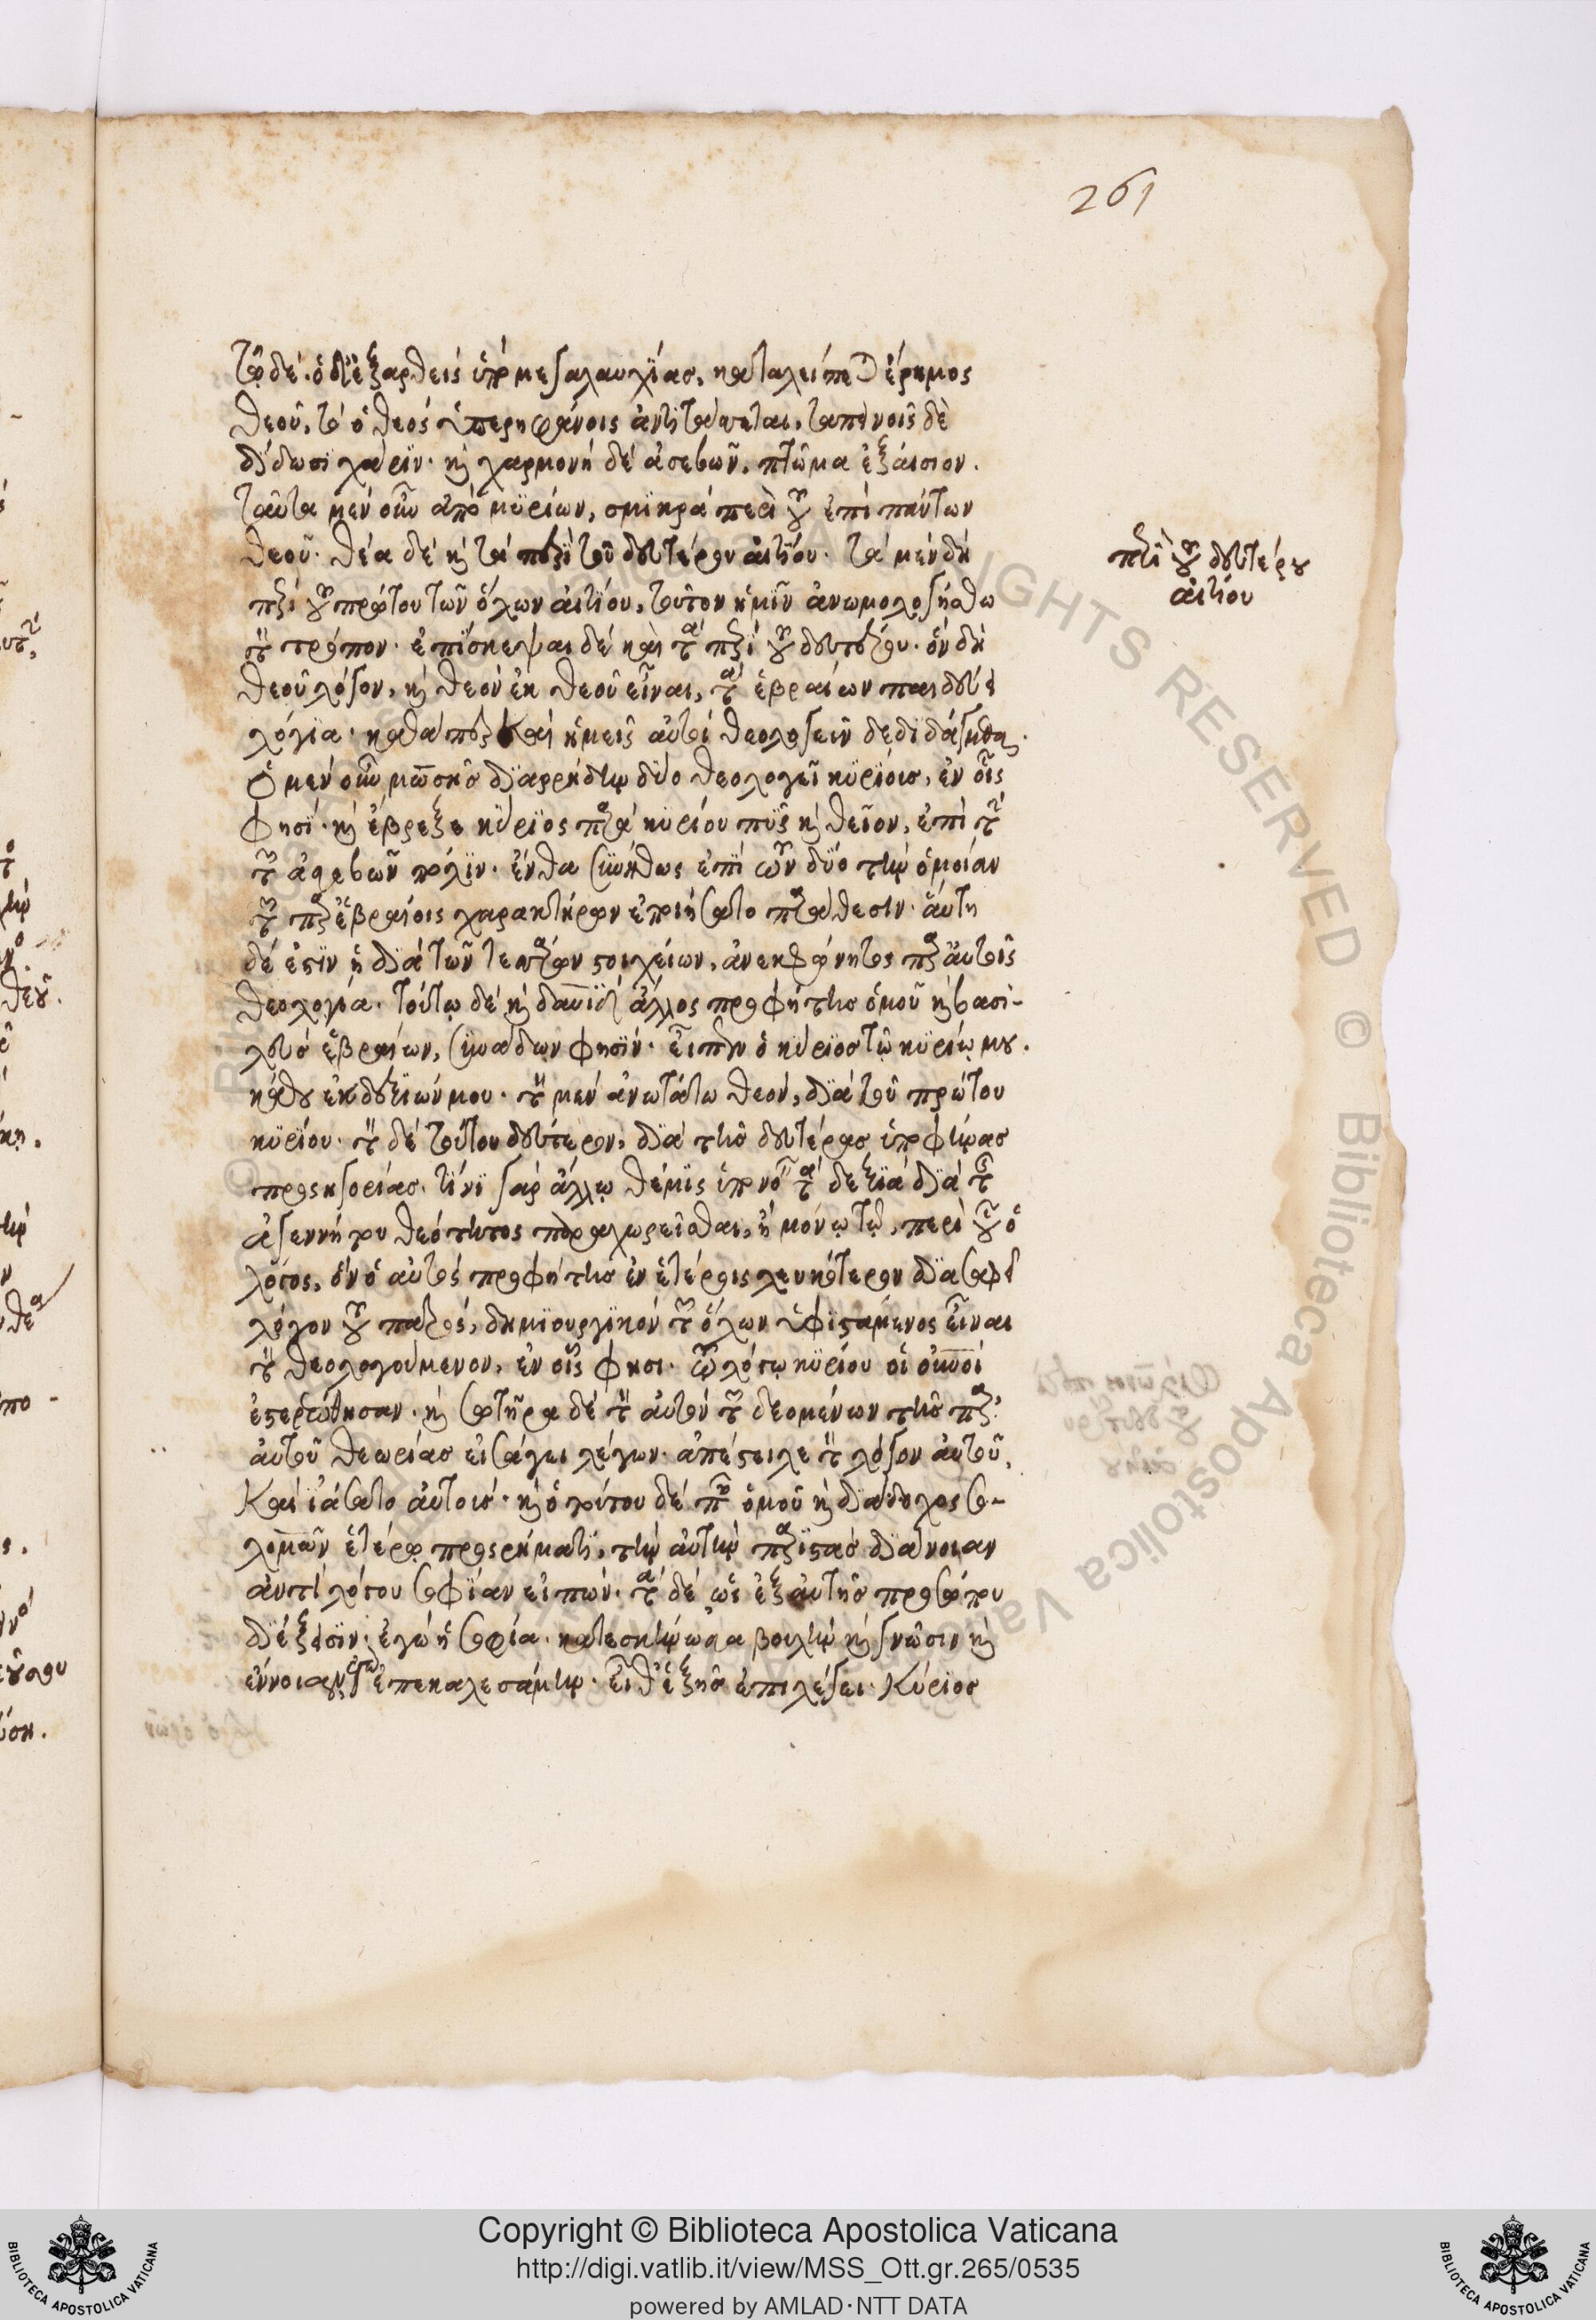 261
τῷδε. ὁ δὲ ἐξαρθεὶς ὑπὸ μεγαλαυχίας, καταλείπεται ἔρημος
θεοῦ, τῷ ὁ θεὸς ὑπερηφάνοις ἀντιτάσσεται, ταπεινοῖς δὲ
δίδωσι χάριν· καὶ χαρμονὴ δὲ ἀσεβῶν, πτῶμα ἐξαίσιον.
ταῦτα μὲν οὖν ἀπὸ μυρίων, σμικρὰ περὶ τοῦ ἐπὶ πάντων
θεοῦ. θέα δὲ καὶ τὰ περὶ τοῦ δευτέρου αἰτίου. τὰ μὲν δὴ
περὶ τοῦ πρώτου τῶν ὅλων αἰτίου, τοῦτον ἡμῖν ἀνωμολογήσθω
τὸν τρόπον· ἐπίσκεψαι δὲ καὶ τὰ περὶ τοῦ δευτέρου. ὃν δὴ
θεοῦ λόγον, καὶ θεὸν ἐκ θεοῦ εἶναι, τὰ ἑβραίων παιδεύει
λόγια· καθάπερ καὶ ἡμεῖς αὐτοὶ θεολογεῖν δεδιδάγμεθα.
Ὁ μὲν οὖν μωσῆς διαρρήδην δύο θεολογεῖ κυρίους, ἐν οἷς
φησί· καὶ ἔβρεξε κύριος παρὰ κυρίου πῦρ καὶ θεῖον, ἐπὶ τὴν
τῶν ἀσεβῶν πόλιν· ἔνθα συνήθως ἐπὶ τῶν δύο τὴν ὁμοίαν
τῶν παρ' ἑβραίοις χαρακτήρων ἐποιήσατο παράθεσιν· αὕτη
δέ ἐστιν ἡ διὰ τῶν τεσσάρων στοιχείων, ἀνεκφώνητος παρ' αὐτοῖς
θεολογία. τούτῳ δὲ καὶ δαυῒδ ἄλλος προφήτης ὁμοῦ καὶ βασι-
λεὺς ἑβραίων, συνᾴδων φησίν· εἶπεν ὁ κύριος τῷ κυρίῳ μου.
κάθου ἐκ δεξιῶν μου. τὸν μὲν ἀνωτάτω θεόν, διὰ τοῦ πρώτου
κυρίου· τὸν δὲ τούτου δεύτερον, διὰ τῆς δευτέρας ὑποφήνας
προσηγορίας. τίνι γὰρ ἄλλῳ θέμις ὑπονοεῖν τὰ δεξιὰ διὰ τῆς
ἀγεννήτου θεότητος παραχωρεῖσθαι, ἢ μόνῳ τῷ, περὶ οὗ ὁ
λόγος, ὃν ὁ αὐτὸς προφήτης ἐν ἑτέροις λευκότερον διασαφεῖ
λόγον τοῦ πατρός, δημιουργικὸν τῶν ὅλων ὑφιστάμενος εἶναι
τὸν θεολογούμενον, ἐν οἷς φησι· τῷ λόγῳ κυρίου οἱ οὐνοὶ
ἐστερεώθησαν. καὶ σωτῆρα δὲ τὸν αὐτὸν τῶν δεομένων τῆς παρ'
αὐτοῦ θεωρίας εἰσάγει λέγων· ἀπέστειλε τὸν λόγον αὐτοῦ,
Καὶ ἰάσατο αὐτούς· καὶ ὁ τούτου δὲ παῖς ὁμοῦ καὶ διάδοχος σο-
λομῶν ἑτέρῳ προσρήματι, τὴν αὐτὴν παριστὰς διάνοιαν
ἀντὶ λόγου σοφίαν εἰπών. τὰ δὲ ὡς ἐξ αὐτῆς προσώπου
διέξεισιν· ἐγὼ ἡ σοφία. κατεσκήνωσα βουλὴν καὶ γνῶσιν καὶ
ἔννοιαν ἐγὼ ἐπεκαλεσάμην. εἶθ' ἑξῆς ἐπιλέγει· Κύριος
περὶ τοῦ δευτέρου
αἰτίου
Copyright © Biblioteca Apostolica Vaticana
http://digi.vatlib.it/view/MSS_Ott.gr.265/0535
powered by AMLAD·NTT DATA